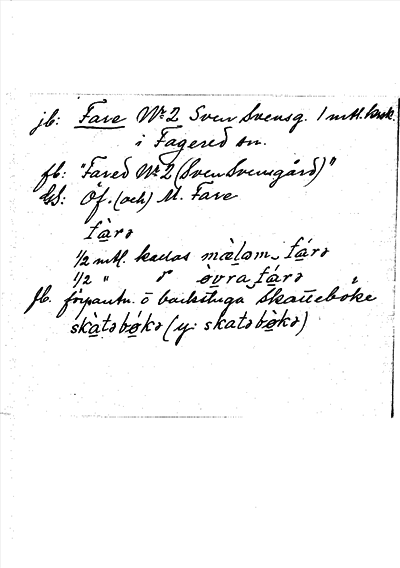 jb: Fare No 2 Sven Svensg. 1 mtl. krsk.
i Fagered sn.
fb: "Fared No 2 (Sven Svensgård)"
GS: Öf. (och) M. Fare
fàrə
1/2 mtl. kallas mæ̀lom_fárə
1/2 " ö òvra_fárə
fb. förpantn. o backstuga Skatteböke
skàtəbökə (y: skatəbö̀kə)